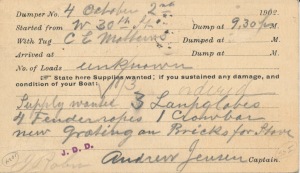 Dumper No. 4 October 2nd 1902.
Started from W 30th St Dump at 9,30 P.M.
With Tug C E Mathews Dumped at M.
Arrived at Dump at M.
No. of Loads unknown
State here Supplies wanted; if you sustained any damage, and
condition of your Boat:
Supply wanted 3 Lampglobes
4 Fenderropes 1 Crowbar
new Grating on Bricks for Stove
J. D. D.
Andrew Jensen Captain.